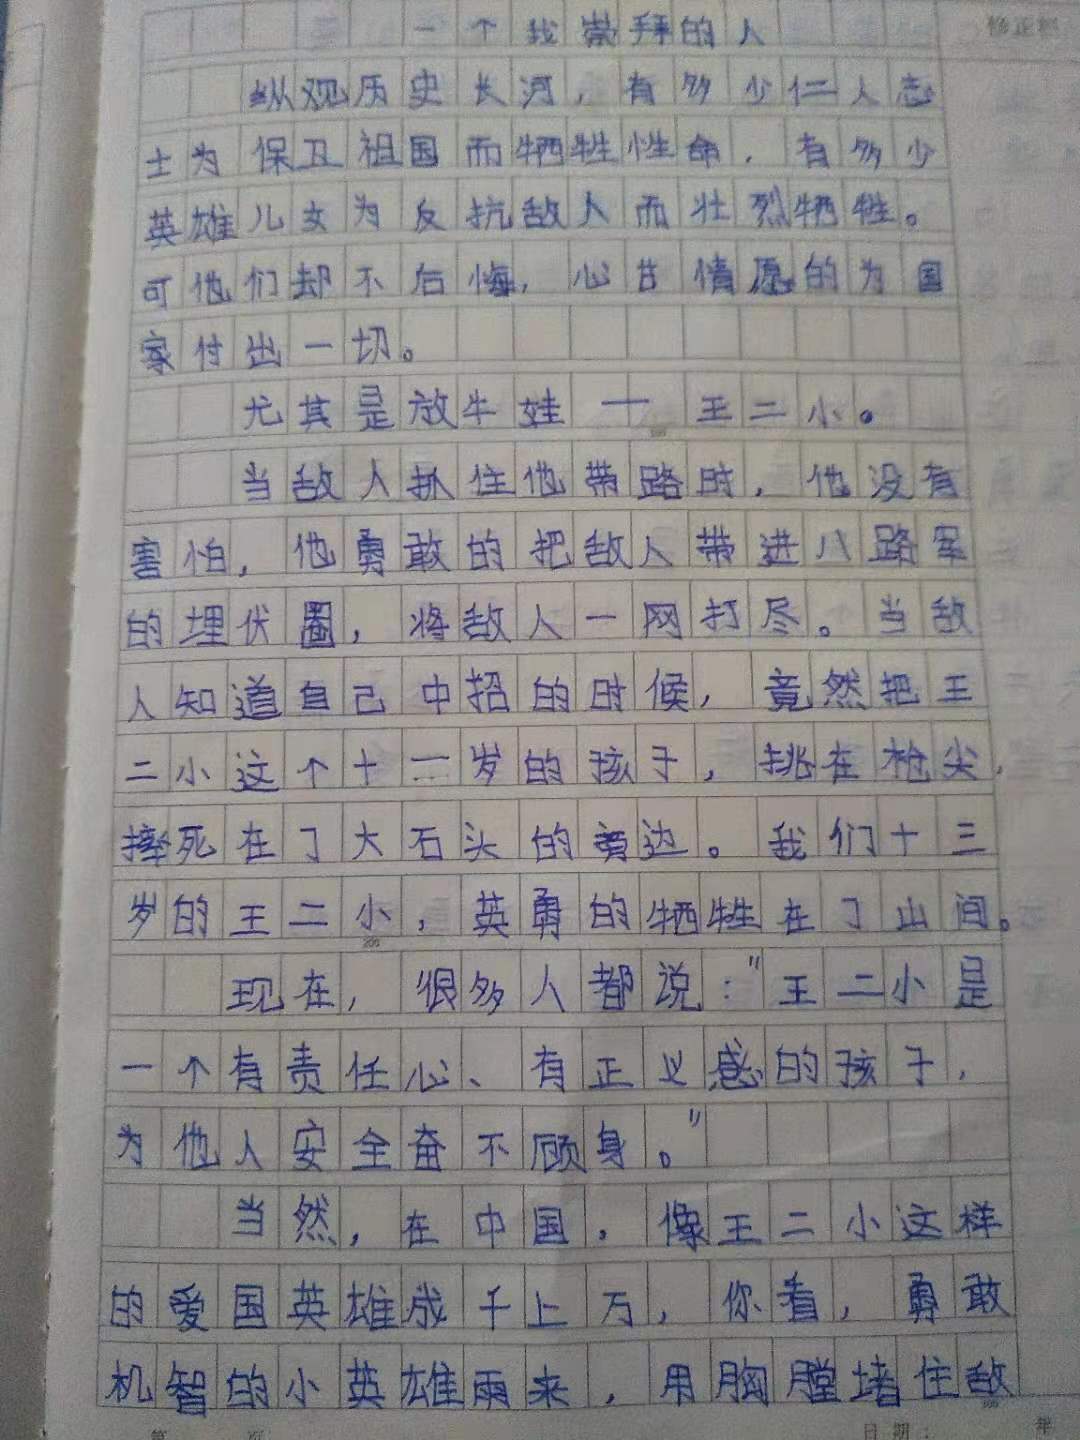 一个我崇拜的人
纵观历史长河，有多少仁人志
士为保卫祖国而牺牲性命，有多少
英雄儿女为反抗敌人而壮烈牺牲。
可他们却不后悔，心甘情愿的为国
家付出一切。
尤其是放牛娃——王二小。
当敌人抓住他带路时，他没有
害怕，他勇敢的把敌人带进八路军
的埋伏圈，将敌人一网打尽。当敌
人知道自己中招的时候，竟然把王
二小这个十一岁的孩子，挑在枪尖，
摔死在了大石头的旁边。我们十三
岁的王二小，英勇的牺牲在了山间。
现在，很多人都说："王二小是
一个有责任心、有正义感的孩子，
为他人安全奋不顾身。"
当然，在中国，像王二小这样
的爱国英雄成千上万，你看，勇敢
机智的小英雄雨来，用胸膛堵住敌
修正栏
第 页
日期： 年
200
300